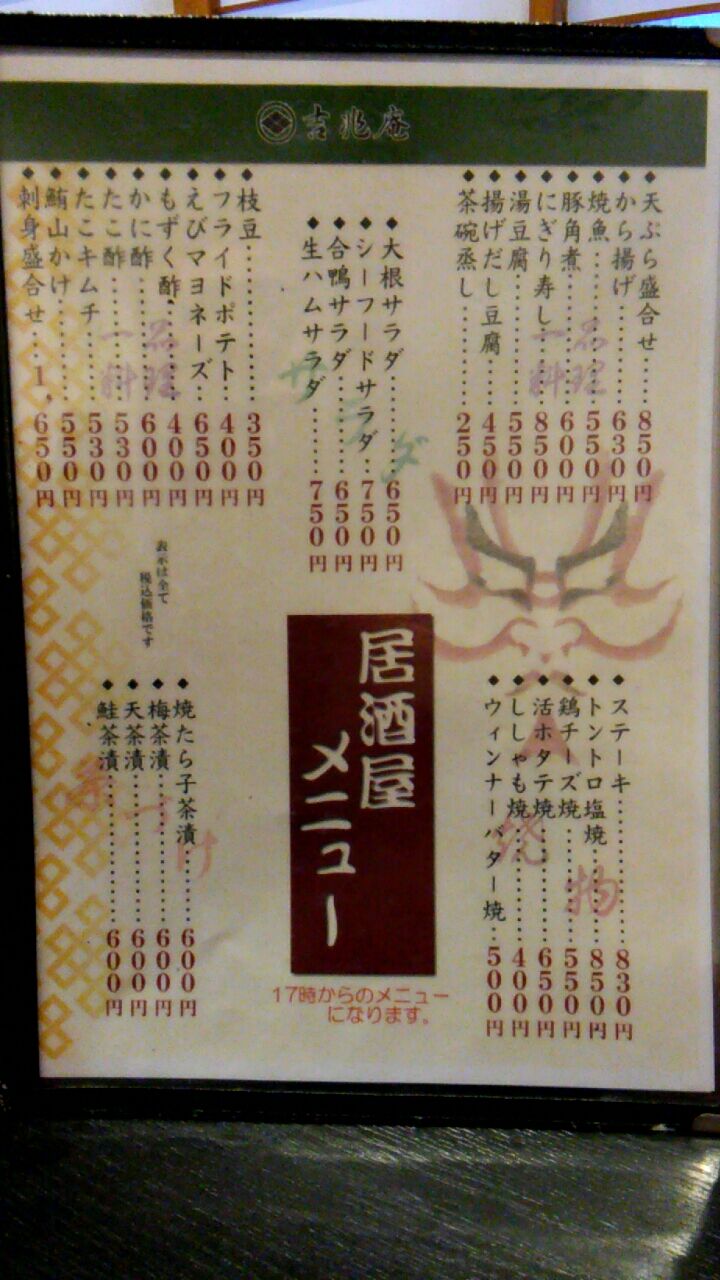 吉兆庵
一品料理
天ぷら盛合せ 850円
から揚げ 630円
焼魚 550円
豚角煮 600円
にぎり寿し 850円
湯豆腐 550円
揚げだし豆腐 450円
茶碗蒸し 250円
サラダ
大根サラダ 650円
シーフードサラダ 750円
合鴨サラダ 650円
生ハムサラダ 750円
一品料理
枝豆 350円
フライドポテト 400円
えびマヨネーズ 650円
もずく酢 400円
かに酢 600円
たこ酢 530円
たこキムチ 530円
鮪山かけ 550円
刺身盛合せ 1,650円
焼物
ステーキ 830円
トントロ塩焼 850円
鶏チーズ焼 550円
活ホタテ焼 650円
ししゃも焼 400円
ウィンナーバター焼 500円
居酒屋
メニュー
17時からのメニュー
になります。
表示は全て
税込価格です
茶づけ
焼たら子茶漬 600円
梅茶漬 600円
天茶漬 600円
鮭茶漬 600円